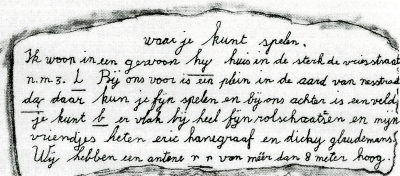 waar je kunt spelen.
Ik woon in een gewoon hy huis in de sterk de vrienstraat
n.m.3. L Bij ons voor is een plein in de aard van nesstraat
dar daar kun je fijn spelen en bij ons achter is een veld
je kunt b er vlak bij heel fijn rolschaatsen en mijn
vriendjes heten eric hanegraaf en dicky glaudemans
Wij hebben een antene r n van méér dan 8 meter hoog.